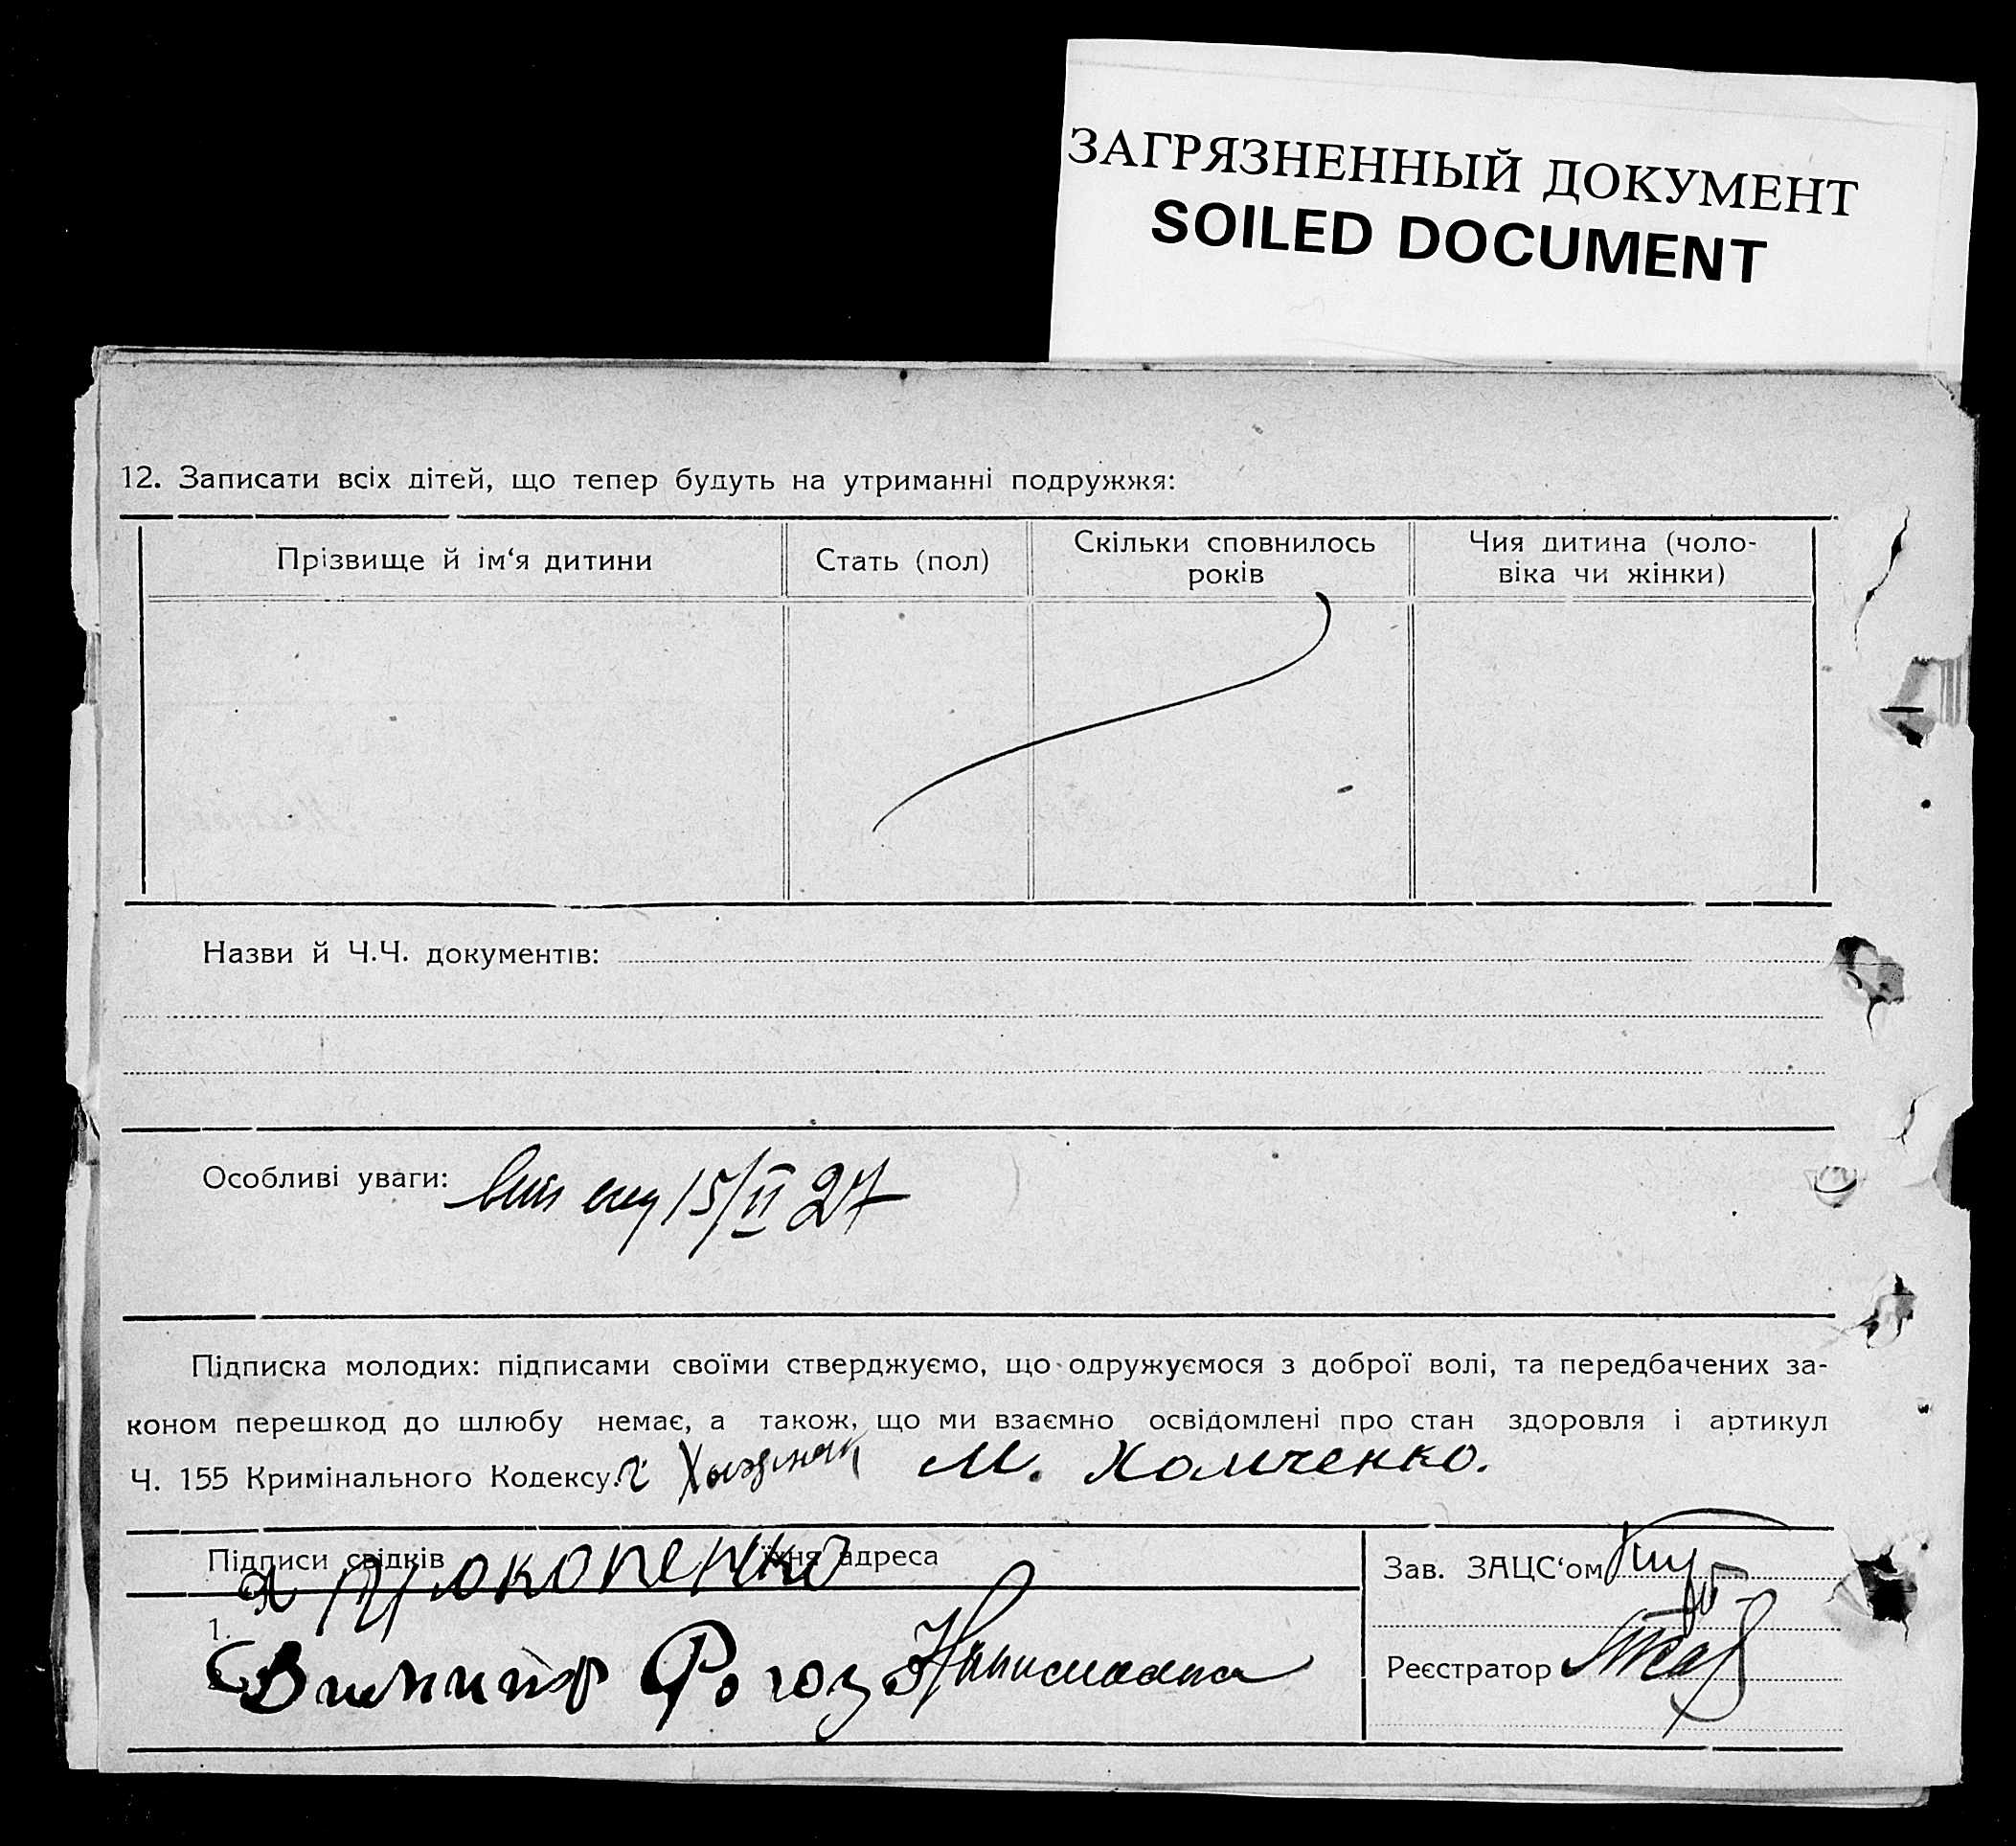 ЗАГРЯЗНЕННЫЙ ДОКУМЕНТ
SOILED DOCUMENT
12. Записати всіх дітей, що тепер будуть на утриманні подружжя:
Прізвище й ім‘я дитини
Стать (пол)
Скільки сповнилось
років
Чия дитина (чоло-
віка чи жінки)
Назви й Ч.Ч. документів:
Особливі уваги: 15/II 27
Підписка молодих: підписами своїми стверджуємо, що одружуємося з доброї волі, та передбачених за-
коном перешкод до шлюбу немає, а також, що ми взаємно освідомлені про стан здоровля і артикул
Ч. 155 Кримінального Кодексу. М. Хомченко.
Підписи свідків їхня адреса
Прокопенко
1.
Рогоз
Зав. ЗАЦС‘ом
Реєстратор